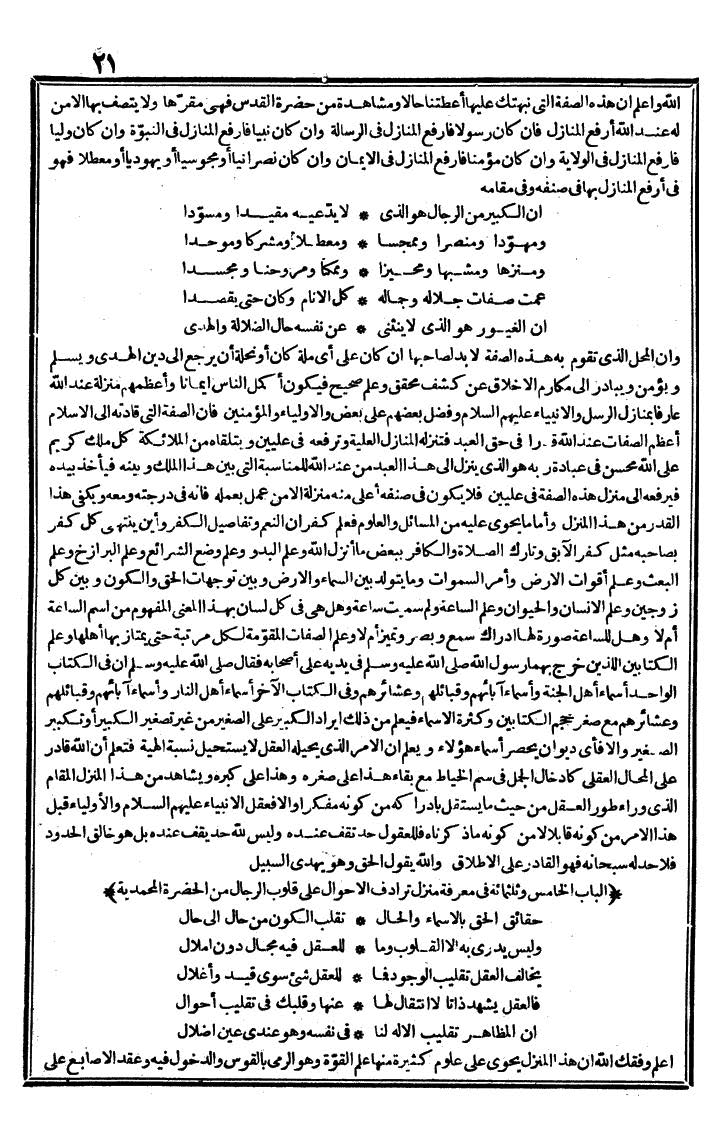 ٢١
الله واعلم ان هذه الصفة التى نبهتك عليها أعطتنا حالا ومشاهدة من حضرة القدس فهى مقرّها ولا يتصف بها الا من
له عند الله أرفع المنازل فان كان رسولا فارفع المنازل فى الرسالة وان كان نبيا فارفع المنازل فى النبوّة وان كان وليا
فارفع المنازل فى الولاية وان كان مؤمنا فارفع المنازل فى الايمان وان كان نصرانيا أو مجوسيا أو يهوديا أو معطلا فهو
فى أرفع المنازل بها فى صنفه وفى مقامه
ان الكبير من الرجال هو الذى * لا يدّعيه مقيدا ومسوّدا
ومهوّدا ومنصرا وممجسا * ومعطلا أو مشركا وموحدا
ومنزها ومشبها ومحيزا * وممكنا ومروحنا ومجسدا
عمت صفات جلاله وجماله * كل الانام وكان حتى يقصدا
ان الغيور هو الذى لا ينثنى * عن نفسه حال الضلالة والهدى
وان المحل الذى تقوم به هذه الصفة لا بد لصاحبها ان كان على أى ملة كان أو نحلة أن يرجع الى دين الهدى ويسلم
ويؤمن ويبادر الى مكارم الاخلاق عن كشف محقق وعلم صحيح فيكون أكمل الناس ايمانا وأعظمهم منزلة عند الله
عارفا بمنازل الرسل والانبياء عليهم السلام وفضل بعضهم على بعض والاولياء والمؤمنين فان الصفة التى قادته الى الاسلام
أعظم الصفات عند الله قدرا فى حق العبد فتنزله المنازل العلية وترفعه فى عليين ويتلقاه من الملائكة كل ملك كريم
على الله محسن فى عبادة ربه هو الذى ينزل الى هذا العبد من عند الله للمناسبة التى بين هذا الملك وبينه فيأخذ بيده
فيرفعه الى منزل هذه الصفة فى عليين فلا يكون فى صنفه أعلى منه منزلة الا من عمل بعمله فانه فى درجته ومعه ويكفى هذا
القدر من هذا المنزل وأما ما يحوى عليه من المسائل والعلوم فعلم كفران النعم وتفاصيل الكفر وأين ينتهى كل كفر
بصاحبه مثل كفر الآبق وتارك الصلاة والكافر ببعض ما أنزل الله وعلم البدو وعلم وضع الشرائع وعلم البرازخ وعلم
البعث وعلم أقوات الارض وأمر السموات وما يتولد بين السماء والارض وبين توجهات الحق والكون وبين كل
زوجين وعلم الانسان والحيوان وعلم الساعة ولم سميت ساعة وهل هى فى كل لسان بهذا المعنى المفهوم من اسم الساعة
أم لا وهل للساعة صورة لها ادراك سمع وبصر وتميز أم لا وعلم الصفات المقوّمة لكل مرتبة حتى يمتاز بها أهلها وعلم
الكتابين اللذين خرج بهما رسول الله صلى الله عليه وسلم فى يديه على أصحابه فقال صلى الله عليه وسلم ان فى الكتاب
الواحد أسماء أهل الجنة وأسماء آبائهم وقبائلهم وعشائرهم وفى الكتاب الآخر أسماء أهل النار وأسماء آبائهم وقبائلهم
وعشائرهم مع صغر حجم الكتابين وكثرة الاسماء فيعلم من ذلك ايراد الكبير على الصغير من غير تصغير الكبير أو تكبير
الصغير والا فأى ديوان يحصر أسماء هؤلاء ويعلم ان الامر الذى يحيله العقل لا يستحيل نسبة الهية فتعلم أن الله قادر
على المحال العقلى كادخال الجمل فى سم الخياط مع بقاء هذا على صغره وهذا على كبره ويشاهد من هذا المنزل المقام
الذى وراء طور العقل من حيث ما يستقل بادراكه من كونه مفكرا والا فعقل الانبياء عليهم السلام والأولياء قبل
هذا الامر من كونه قابلا لا من كونه ما ذكرناه فللعقول حد تقف عنده وليس لله حد يقف عنده بل هو خالق الحدود
فلا حد له سبحانه فهو القادر على الاطلاق والله يقول الحق وهو يهدى السبيل
﴿الباب الخامس وثلثمائة فى معرفة منزل ترادف الاحوال على قلوب الرجال من الحضرة المحمدية﴾
حقائق الحق بالاسماء والحال * تقلب الكون من حال الى حال
وليس يدرى به الا القلوب وما * للعقل فيه مجال دون املال
يخالف العقل تقليب الوجود فما * للعقل شئ سوى قيد وأغلال
فالعقل يشهد ذاتا لا انتقال لها * عنها وقلبك فى تقليب أحوال
ان المظاهر تقليب الاله لنا * فى نفسه وهو عندى عين اضلال
اعلم وفقك الله ان هذا المنزل يحوى على علوم كثيرة منها علم القوّة وهو الرمى بالقوس والدخول فيه وعقد الاصابع على